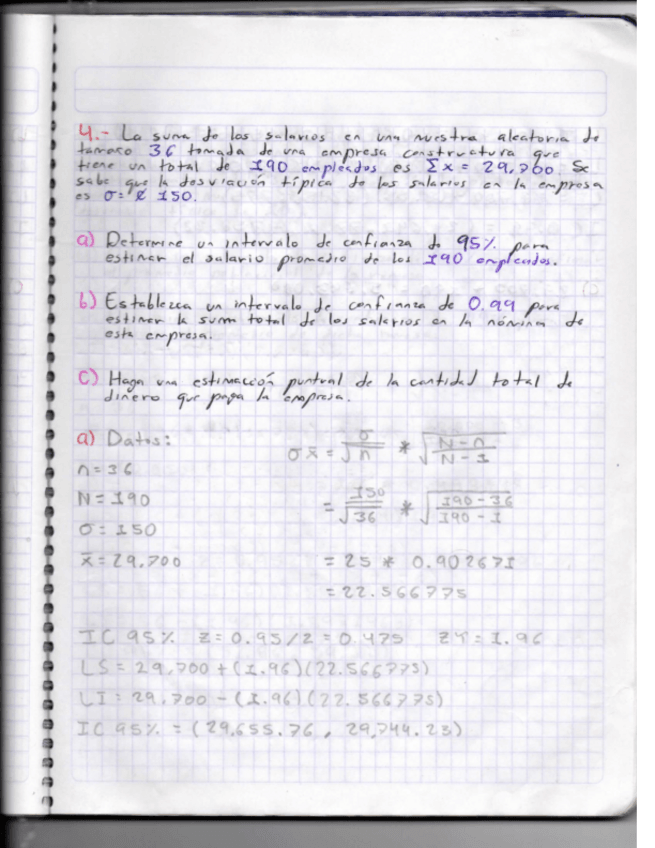 4.- La suma de los salarios en una muestra aleatoria de
tamaño 36 tomada de una empresa constructura que
tiene un total de 190 empleados es Σx = 29,700. Se
sabe que la desviación típica de los salarios en la empresa
es σ = 150.
a) Determine un intervalo de confianza de 95% para
estimar el salario promedio de los 190 empleados.
b) Establezca un intervalo de confianza de 0.99 para
estimar la suma total de los salarios en la nómina de
esta empresa.
c) Haga una estimación puntual de la cantidad total de
dinero que paga la empresa.
a) Datos:
n = 36
N = 190
σ = 150
x̄ = 29,700
σx̄ = σ/√n * √(N-n)/(N-1)
= 150/√36 * √(190-36)/(190-1)
= 25 * 0.902671
= 22.566775
IC 95% Z = 0.95/2 = 0.475 ZT = 1.96
LS = 29,700 + (1.96)(22.566775)
LI = 29,700 - (1.96)(22.566775)
IC 95% = (29,655.76, 29,744.23)